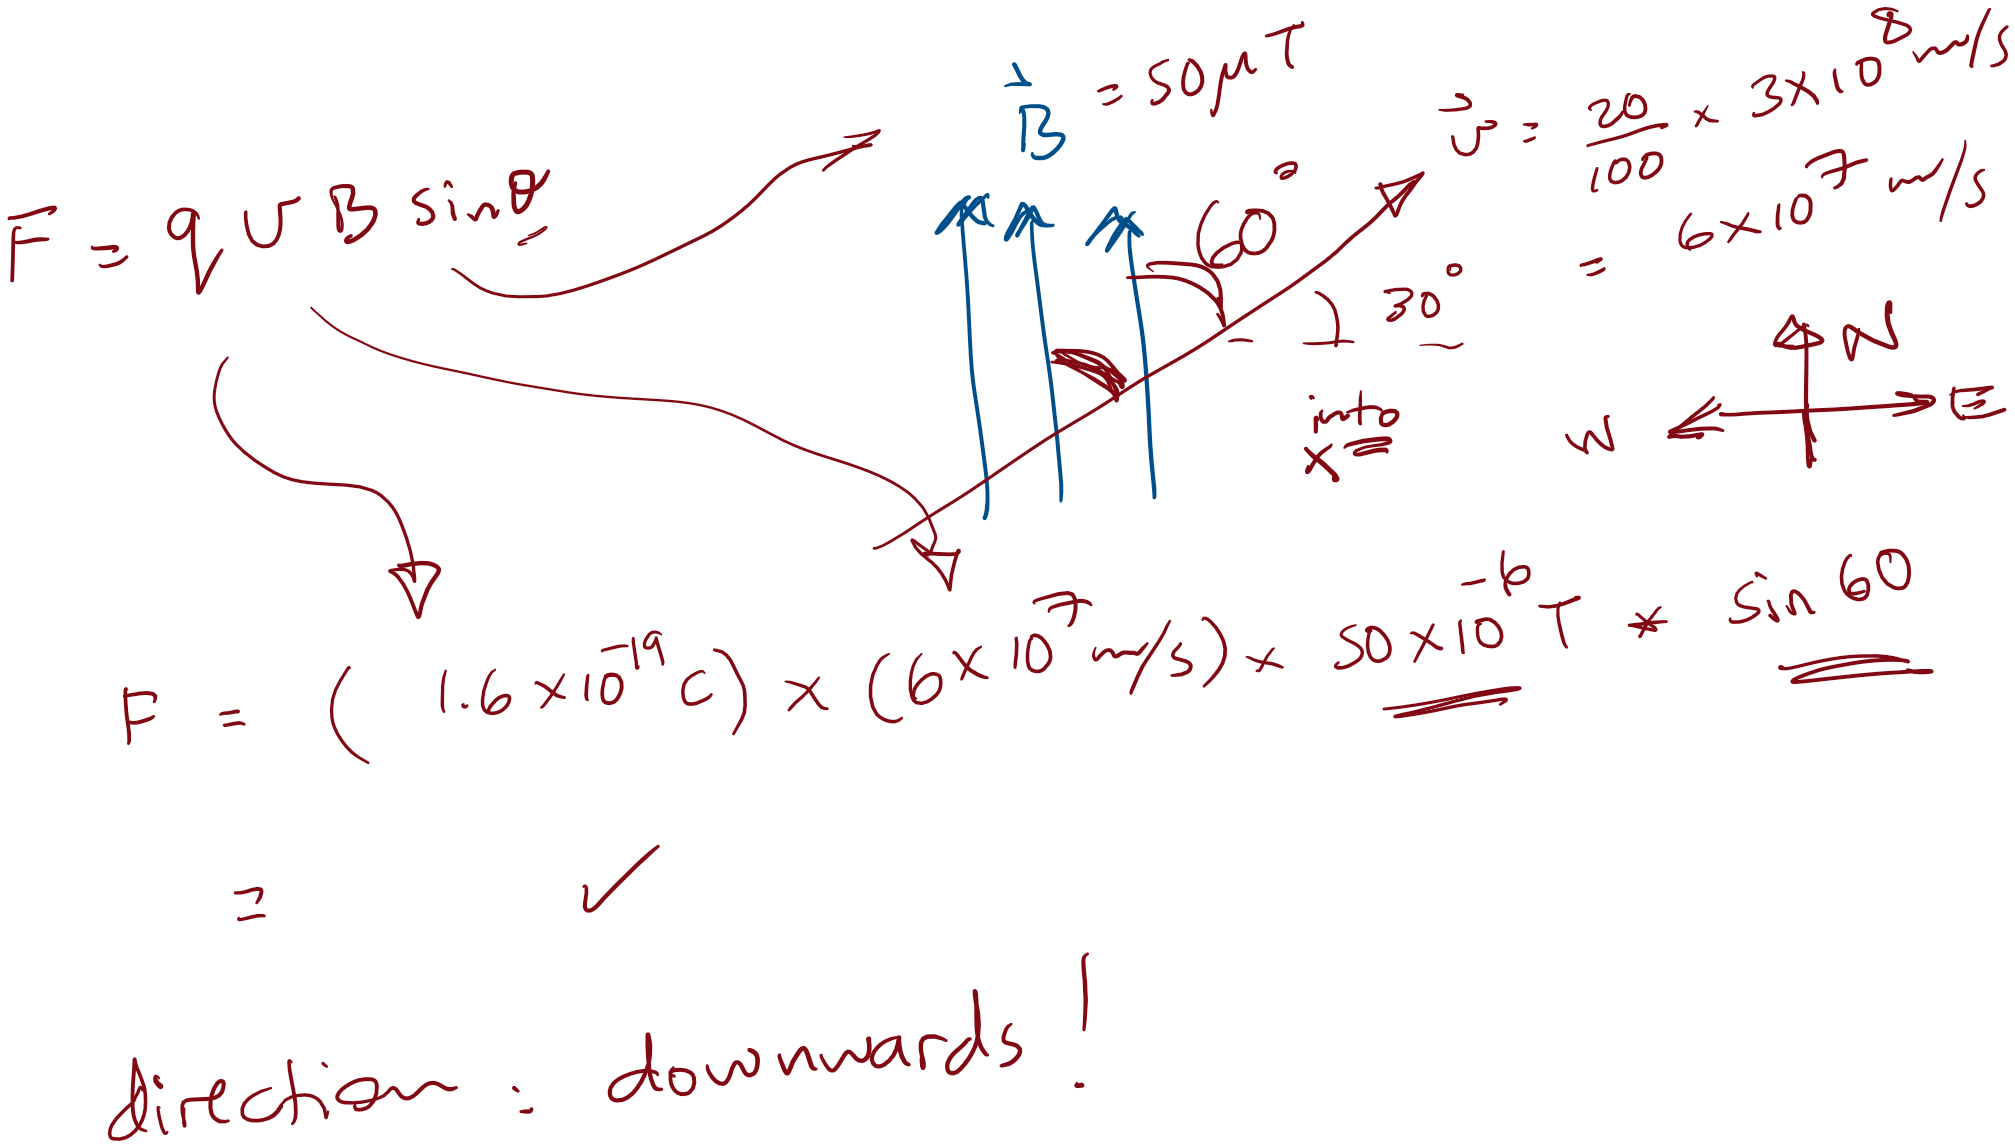 F = q v B sinθ
B⃗ = 50μT
v⃗ = 20/100 × 3×10⁸ m/s
= 6×10⁷ m/s
60°
30°
into
×
N
W
E
F = (1.6×10⁻¹⁹ C) × (6×10⁷ m/s) × 50×10⁻⁶ T * sin 60
= ✓
direction : downwards!